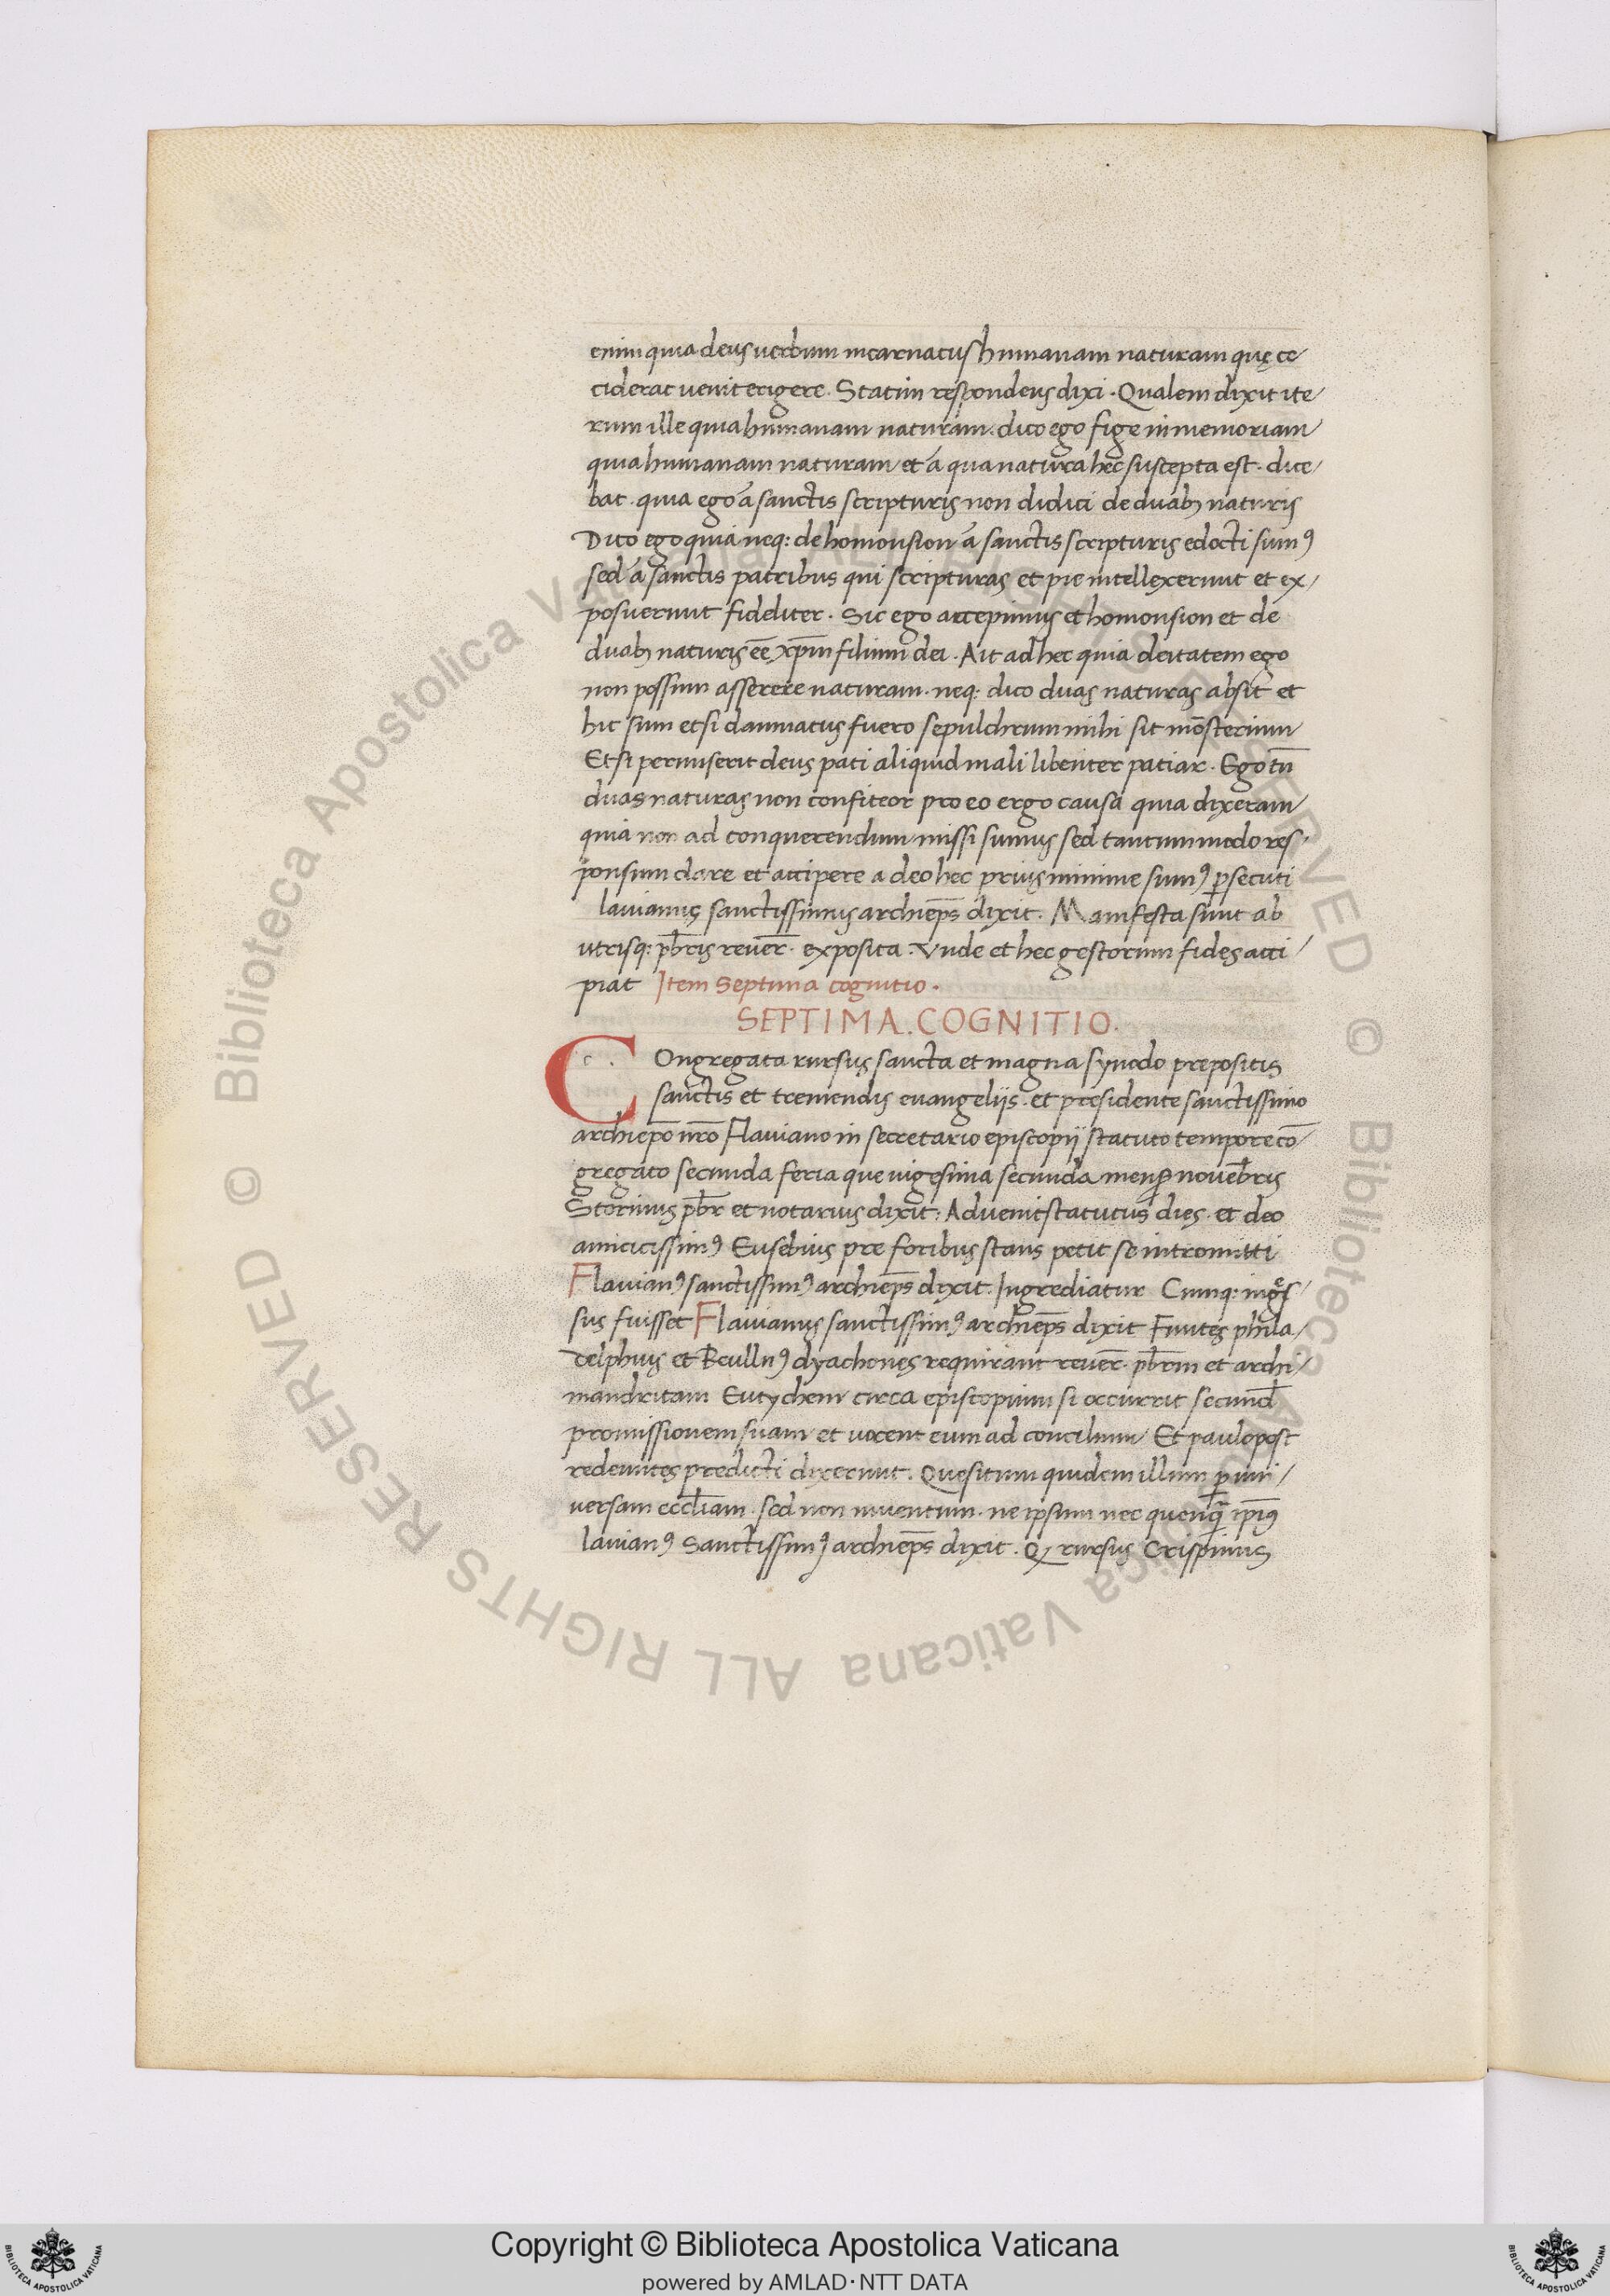 enim quia deus verbum incarnatus humanam naturam quę ce
ciderat venit erigere. Statim respondens dixi. Qualem dixit ite/
rum ille quia humanam naturam. dico ego fige in memoriam
quia humanam naturam et a qua natura hec suscepta est. dice/
bat. quia ego a sanctis scripturis non didici de duabꝫ naturis
Dico ego quia neq: de homousion a sanctis scripturis edocti sumꝰ
sed a sanctis patribus qui scripturas et pie intellexerunt et ex/
posuerunt fideliter. Sic ego accepimus et homousion et de
duabꝫ naturis eē xp̄m filium dei. Ait ad hec quia deitatem ego
non possum asserere naturam. neq: dico duas naturas absit et
hic sum et si damnatus fuero sepulchrum mihi sit mōsterium
Et si permiserit deus pati aliquid mali libenter patiar. Ego tn̄
duas naturas non confiteor pro eo ergo causa quia dixeram
quia non ad conquerendum missi sumus sed tantummodo res/
ponsum dare et accipere a deo hec prius minime sumꝰ ꝑsecuti
lavianus sanctissimus archiep̄s dixit. Manifesta sunt ab
utrisq: pb̄ris rever̄. exposita. Unde et hec gestorum fides acci/
piat Item Septima cognitio.
SEPTIMA. COGNITIO.
C Ongregata rursus sancta et magna synodo prepositis
sanctis et tremendis evangeliis. et presidente sanctissimo
archiep̄o nr̄o Flaviano in secretario episcopij statuto tempore cō/
gregato secunda feria que vigesima secunda mensꝭ novēbris
Storinus pb̄r et notarius dixit: Advenit statutus dies. et deo
amicitissimꝰ Eusebius pre foribus stans petit se intromitti
Flavianꝰ sanctissimꝰ archiep̄s dixit. Ingrediatur Cumq: ingͤs/
sus fuisset Flavianus sanctissimꝰ archiep̄s dixit Euntes phila/
delphus et Cyrillꝰ dyachones requirant rever̄. pb̄rm et archi/
mandritam Eutychem circa episcopium si occurrit secund̄
promissionem suam et vocent eum ad concilium Et paulopost
redeuntes predicti dixerunt. Quesitum quidem illum ꝑ uni/
versam eccl̄iam. sed non inventum. ne ipsum nec quenq̄ ipiꝰ
lavianꝰ Sanctissimꝰ archiep̄s dixit. Qꝫ rursus Crispinus
Copyright © Biblioteca Apostolica Vaticana
powered by AMLAD·NTT DATA
© Biblioteca Apostolica Vaticana ALL RIGHTS RESERVED
BIBLIOTECA APOSTOLICA VATICANA
BIBLIOTECA APOSTOLICA VATICANA